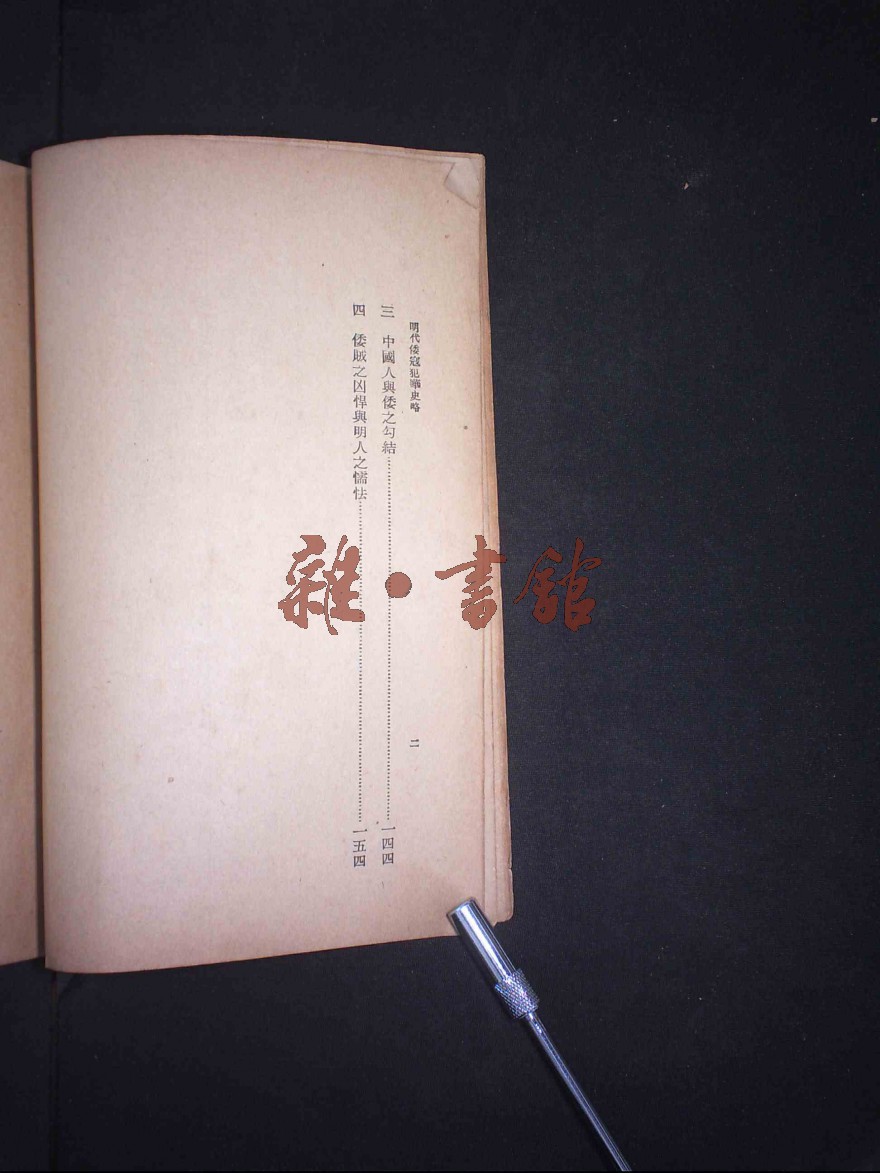 明代倭寇犯華史略
二
三 中國人與倭之勾結……一四四
四 倭賊之凶悍與明人之懦怯……一五四
雜·書館